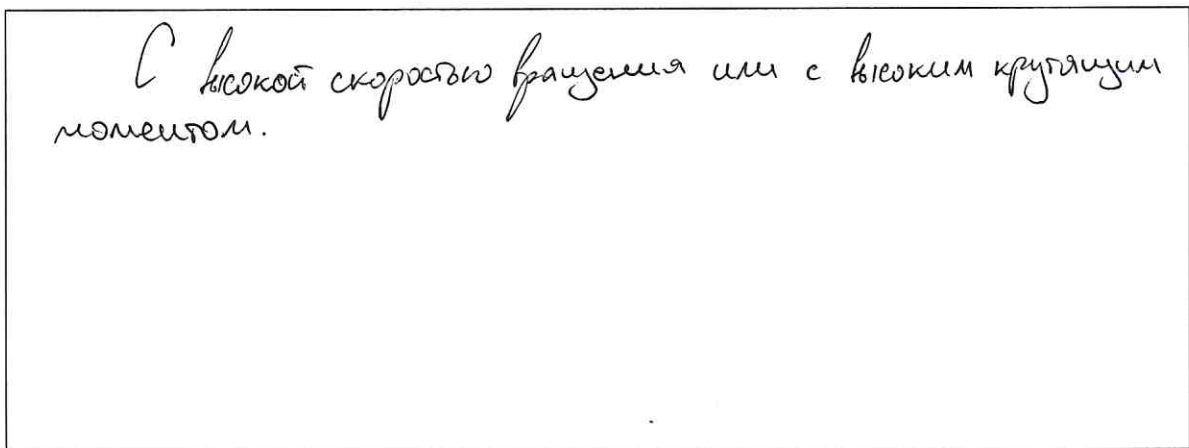 С высокой скоростью вращения или с высоким крутящим
моментом.